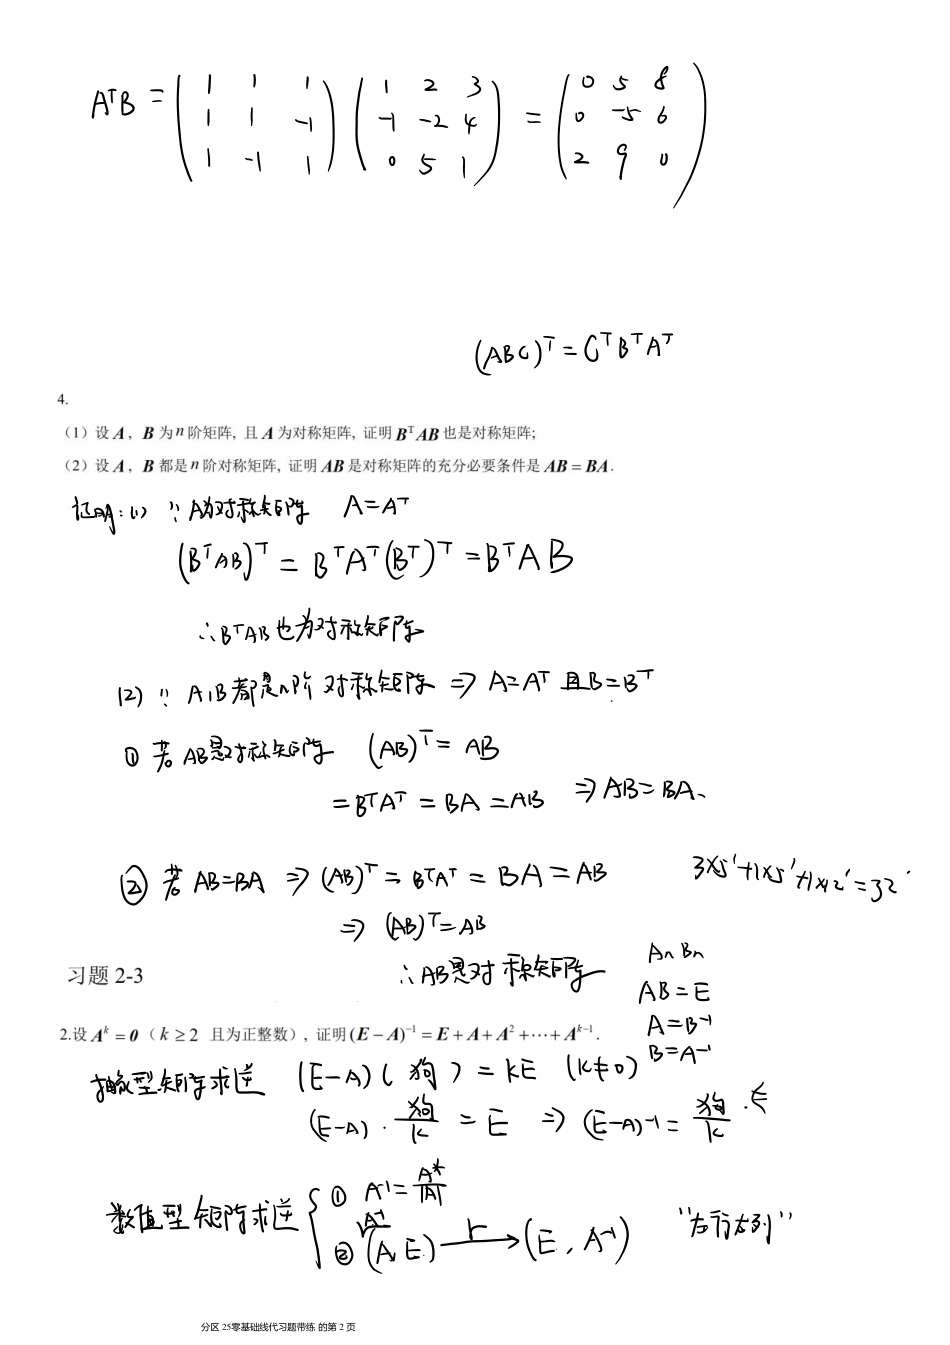 AᵀB = ( 1 1 1 ; 1 1 -1 ; 1 -1 1 ) ( 1 2 3 ; -1 -2 4 ; 0 5 1 ) = ( 0 5 8 ; 0 -5 6 ; 2 9 0 )
(ABC)ᵀ = CᵀBᵀAᵀ
4.
（1）设 A，B 为 n 阶矩阵, 且 A 为对称矩阵, 证明 BᵀAB 也是对称矩阵;
（2）设 A，B 都是 n 阶对称矩阵, 证明 AB 是对称矩阵的充分必要条件是 AB = BA.
证明: (1) ∵ A为对称矩阵 A=Aᵀ
(BᵀAB)ᵀ = BᵀAᵀ(Bᵀ)ᵀ = BᵀAB
∴ BᵀAB也为对称矩阵
(2) ∵ A,B都是n阶对称矩阵 ⇒ A=Aᵀ 且B=Bᵀ
① 若AB是对称矩阵 (AB)ᵀ = AB
= BᵀAᵀ = BA = AB ⇒ AB = BA、
② 若AB=BA ⇒ (AB)ᵀ = BᵀAᵀ = BA = AB
3×5'+1×5'+1×12'=32'
⇒ (AB)ᵀ=AB
∴ AB是对称矩阵
习题 2-3
Aₙ Bₙ
AB = E
A = B⁻¹
B = A⁻¹
2.设 Aᵏ = 0（k ≥ 2 且为正整数）, 证明 (E − A)⁻¹ = E + A + A² + ⋯ + Aᵏ⁻¹.
抽象型矩阵求逆 (E-A)( 狗 ) = kE (k≠0)
(E-A) · 狗/k = E ⇒ (E-A)⁻¹ = 狗/k · E
数值型矩阵求逆 { ① A⁻¹ = A*/|A|
A⁻¹
② (A, E) —r→ (E, A⁻¹) "左行右列"
分区 25零基础线代习题带练 的第 2 页